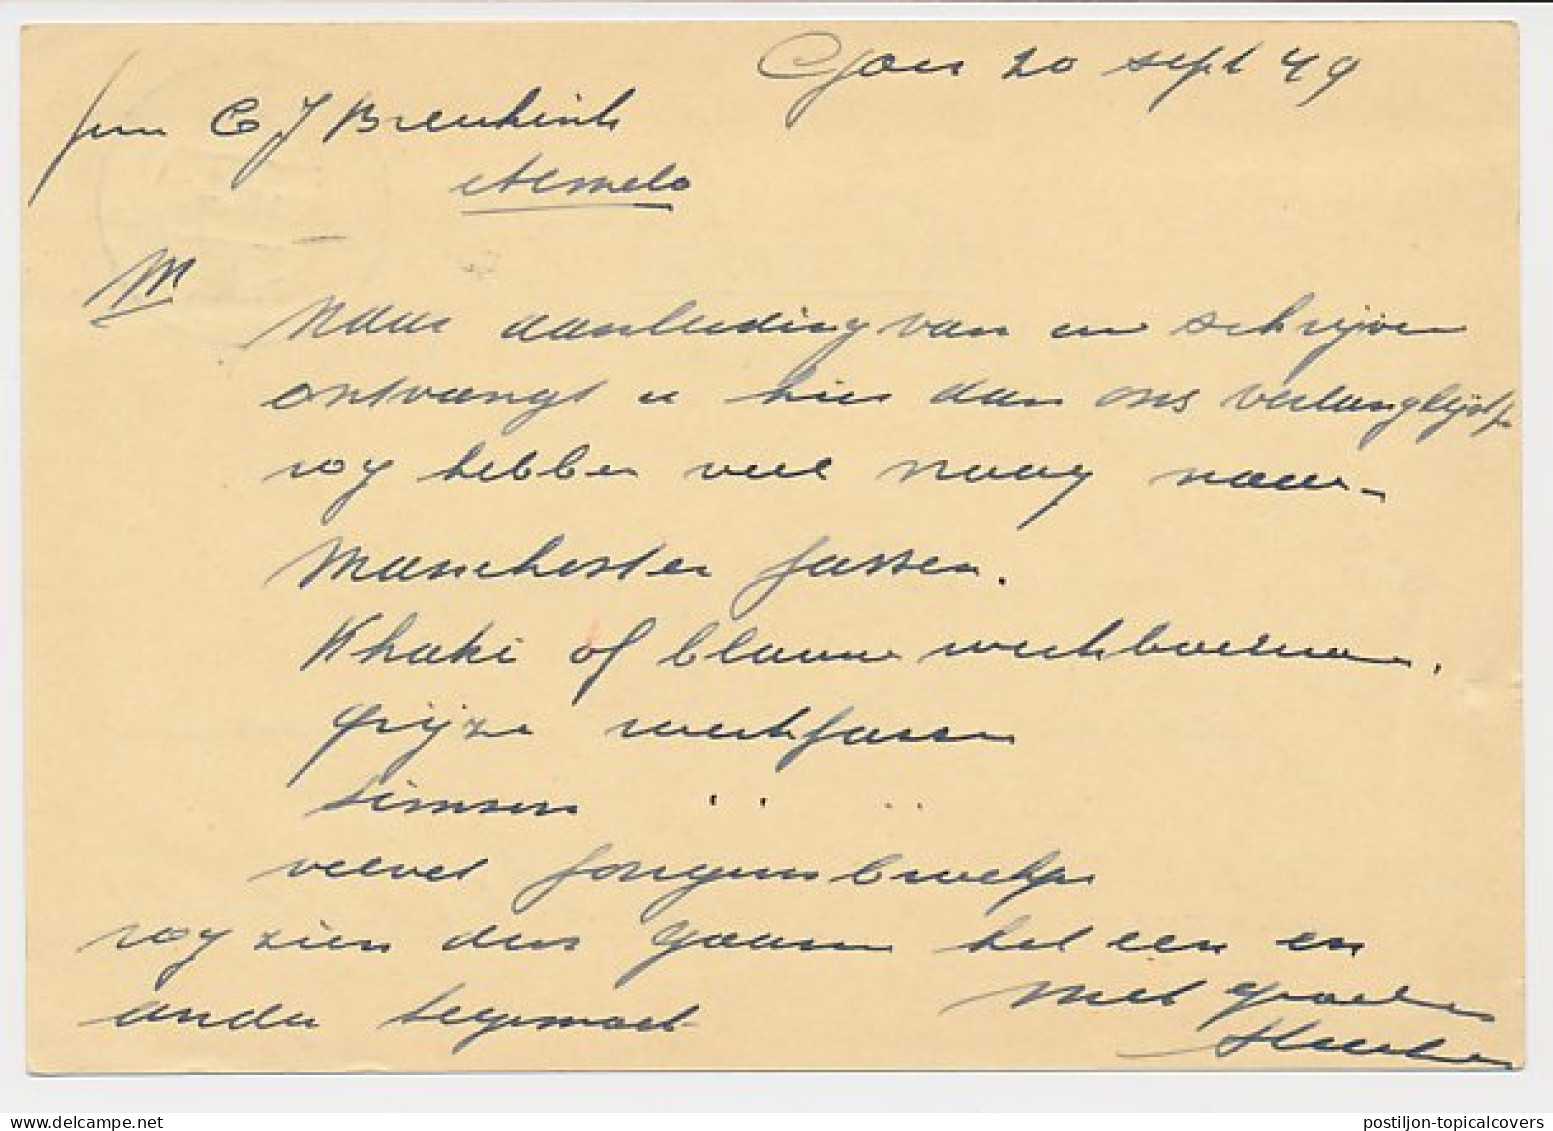 Goes 20 sept 49
Firma C J Breukink
Almelo
M
Naar aanleiding van uw schrijven
ontvangt u hier dan ons verlanglijstje
wy hebben veel vraag naar
Manchester jassen.
Khaki of blauwe werk
grijze werkjassen
velvet jongensbroekjes
wy zien dus gaarne het een en
ander tegemoet
Met
postiljon-topicalcovers